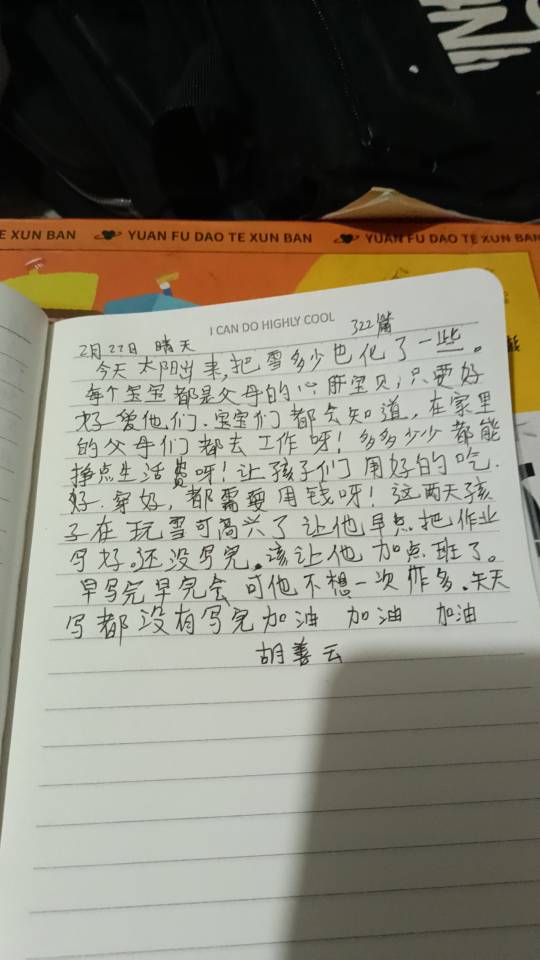 TE XUN BAN
YUAN FU DAO TE XUN BAN
YUAN FU DAO TE XUN BAN
I CAN DO HIGHLY COOL
2月22日 晴天 322篇
今天太阳出来,把雪多少也化了一些。
每个宝宝都是父母的心肝宝贝,只要好
好爱他们.宝宝们都会知道,在家里
的父母们都去工作呀!多多少少都能
挣点生活费呀!让孩子们用好的吃.
好.穿好,都需要用钱呀!这两天孩
子在玩雪可高兴了让他早点把作业
写好。还没写完。该让他加点班了。
早写完早完会可他不想一次作多.天天
写都没有写完加油 加油 加油
胡善云